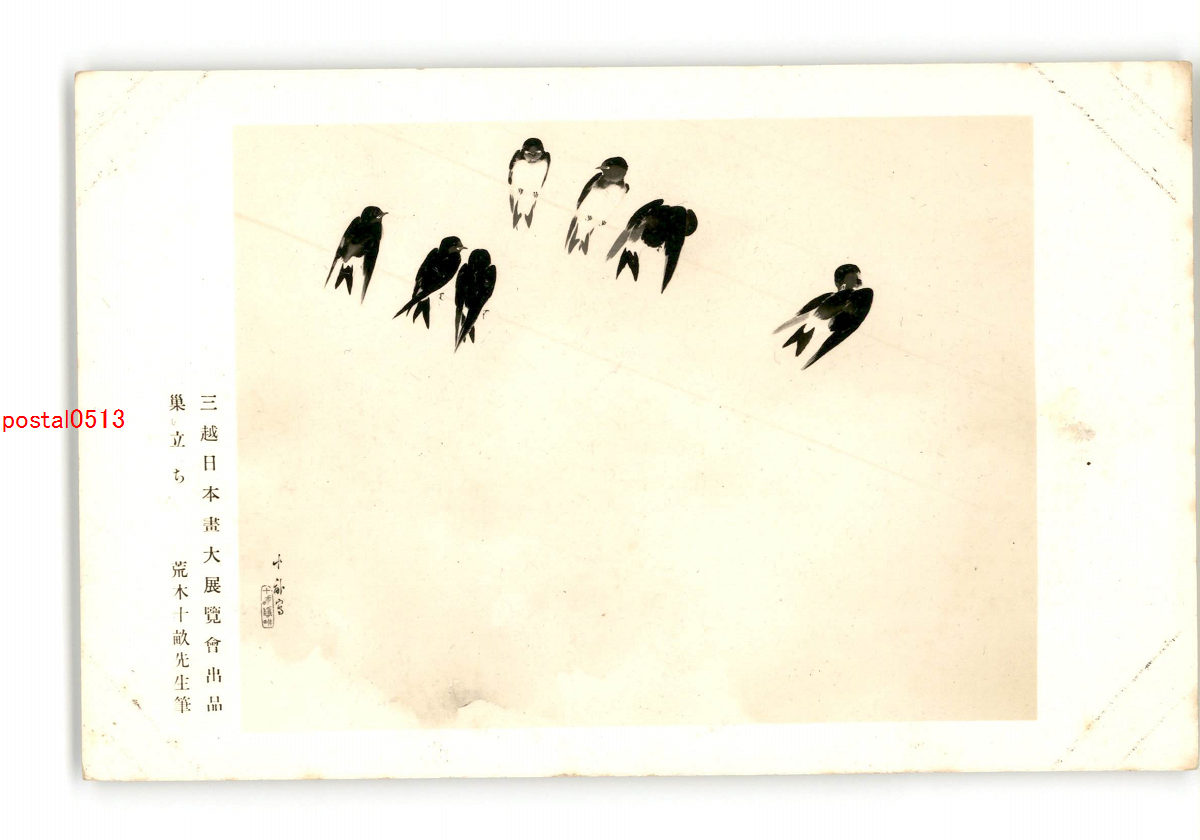 三越日本畫大展覽會出品
巢立ち 荒木十畝先生筆
十畝寫
postal0513